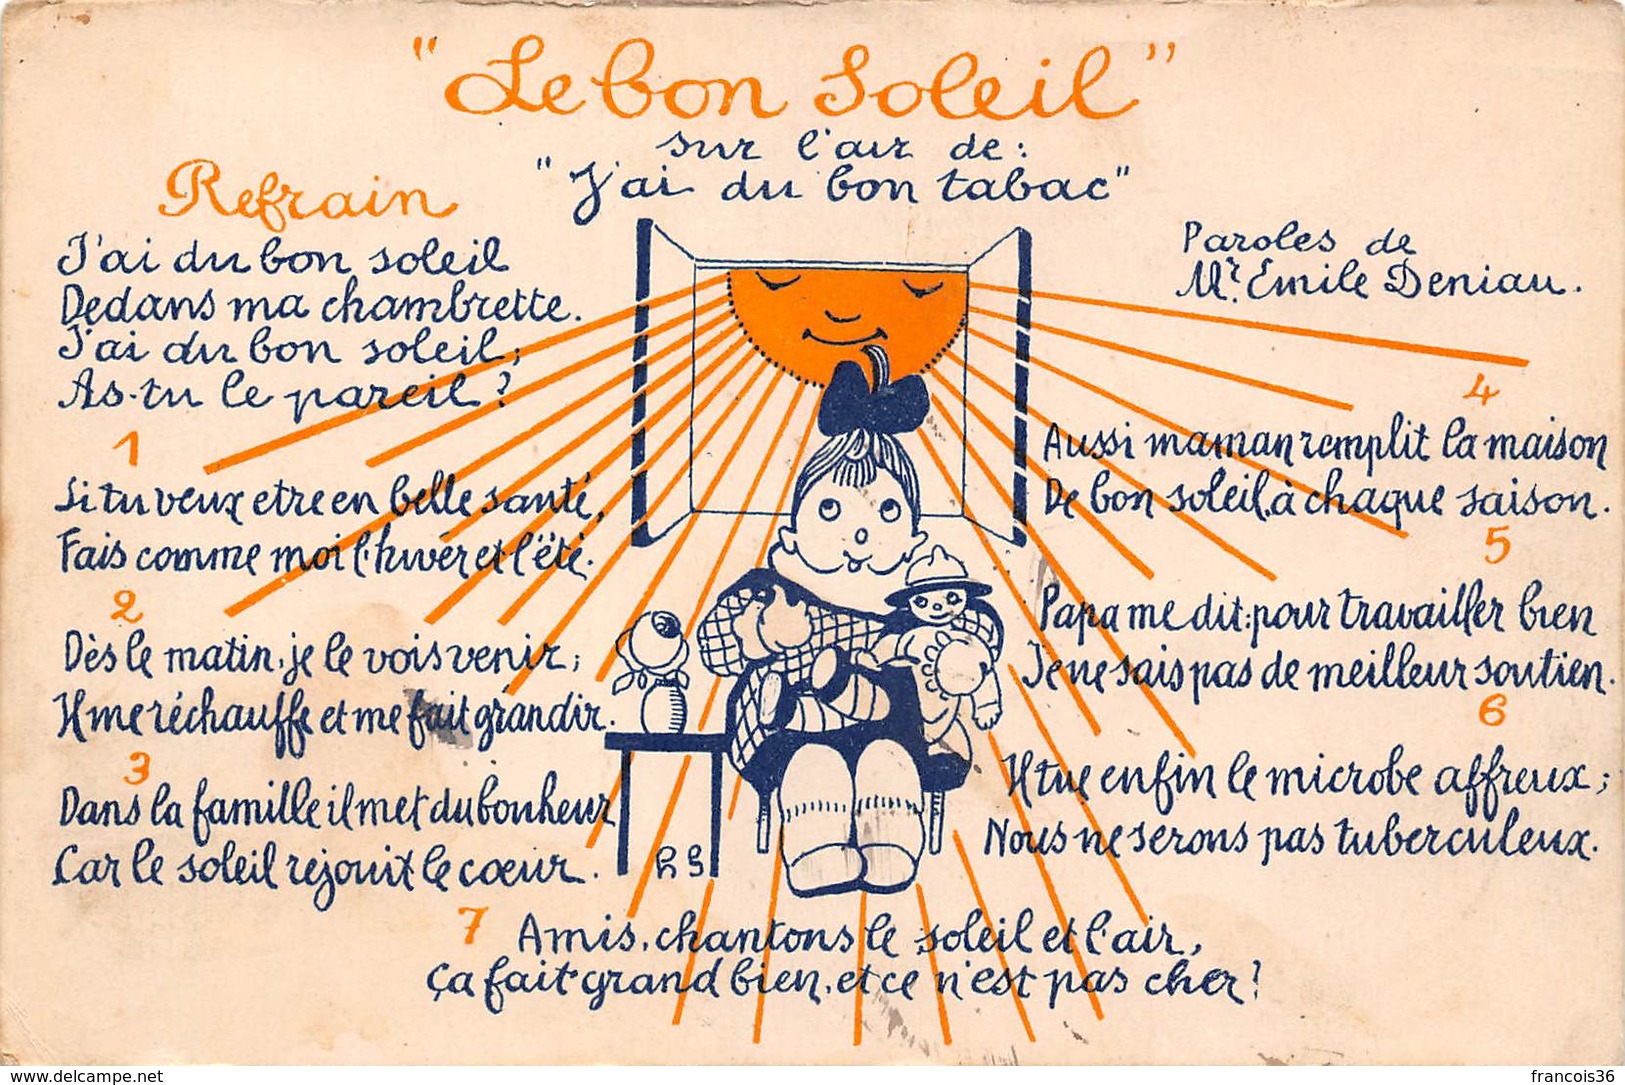 "Le bon Soleil"
sur l'air de :
"J'ai du bon tabac"
Paroles de
Mr. Emile Deniau.
Refrain
J'ai du bon soleil
Dedans ma chambrette.
J'ai du bon soleil;
As-tu le pareil ?
1
Si tu veux etre en belle santé,
Fais comme moi l'hiver et l'été.
2
Dès le matin, je le vois venir;
Il me réchauffe et me fait grandir.
3
Dans la famille il met du bonheur
Car le soleil réjouit le cœur.
4
Aussi maman remplit la maison
De bon soleil, à chaque saison.
5
Papa me dit: pour travailler bien
Je ne sais pas de meilleur soutien.
6
Il tue enfin le microbe affreux;
Nous ne serons pas tuberculeux.
7
Amis, chantons le soleil et l'air,
Ça fait grand bien, et ce n'est pas cher !
www.delcampe.net
francois36